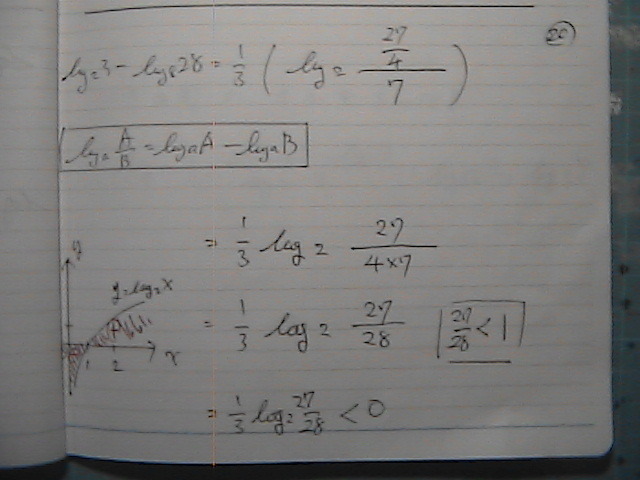 25
log₂3 - log₈28 = 1/3 ( log₂ (27/4)/7 )
logₐ A/B = logₐA - logₐB
= 1/3 log₂ 27/(4×7)
y
y=log₂x
= 1/3 log₂ 27/28 27/28 < 1
1 2 x
= 1/3 log₂ 27/28 < 0